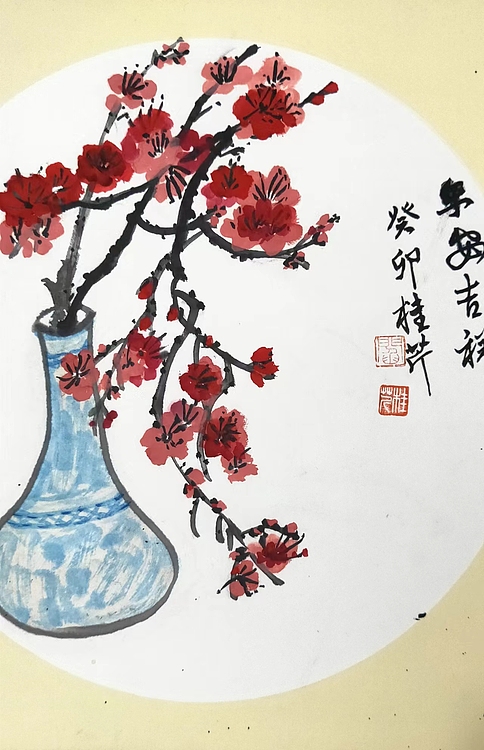 平安吉祥
癸卯桂芹
桂芹